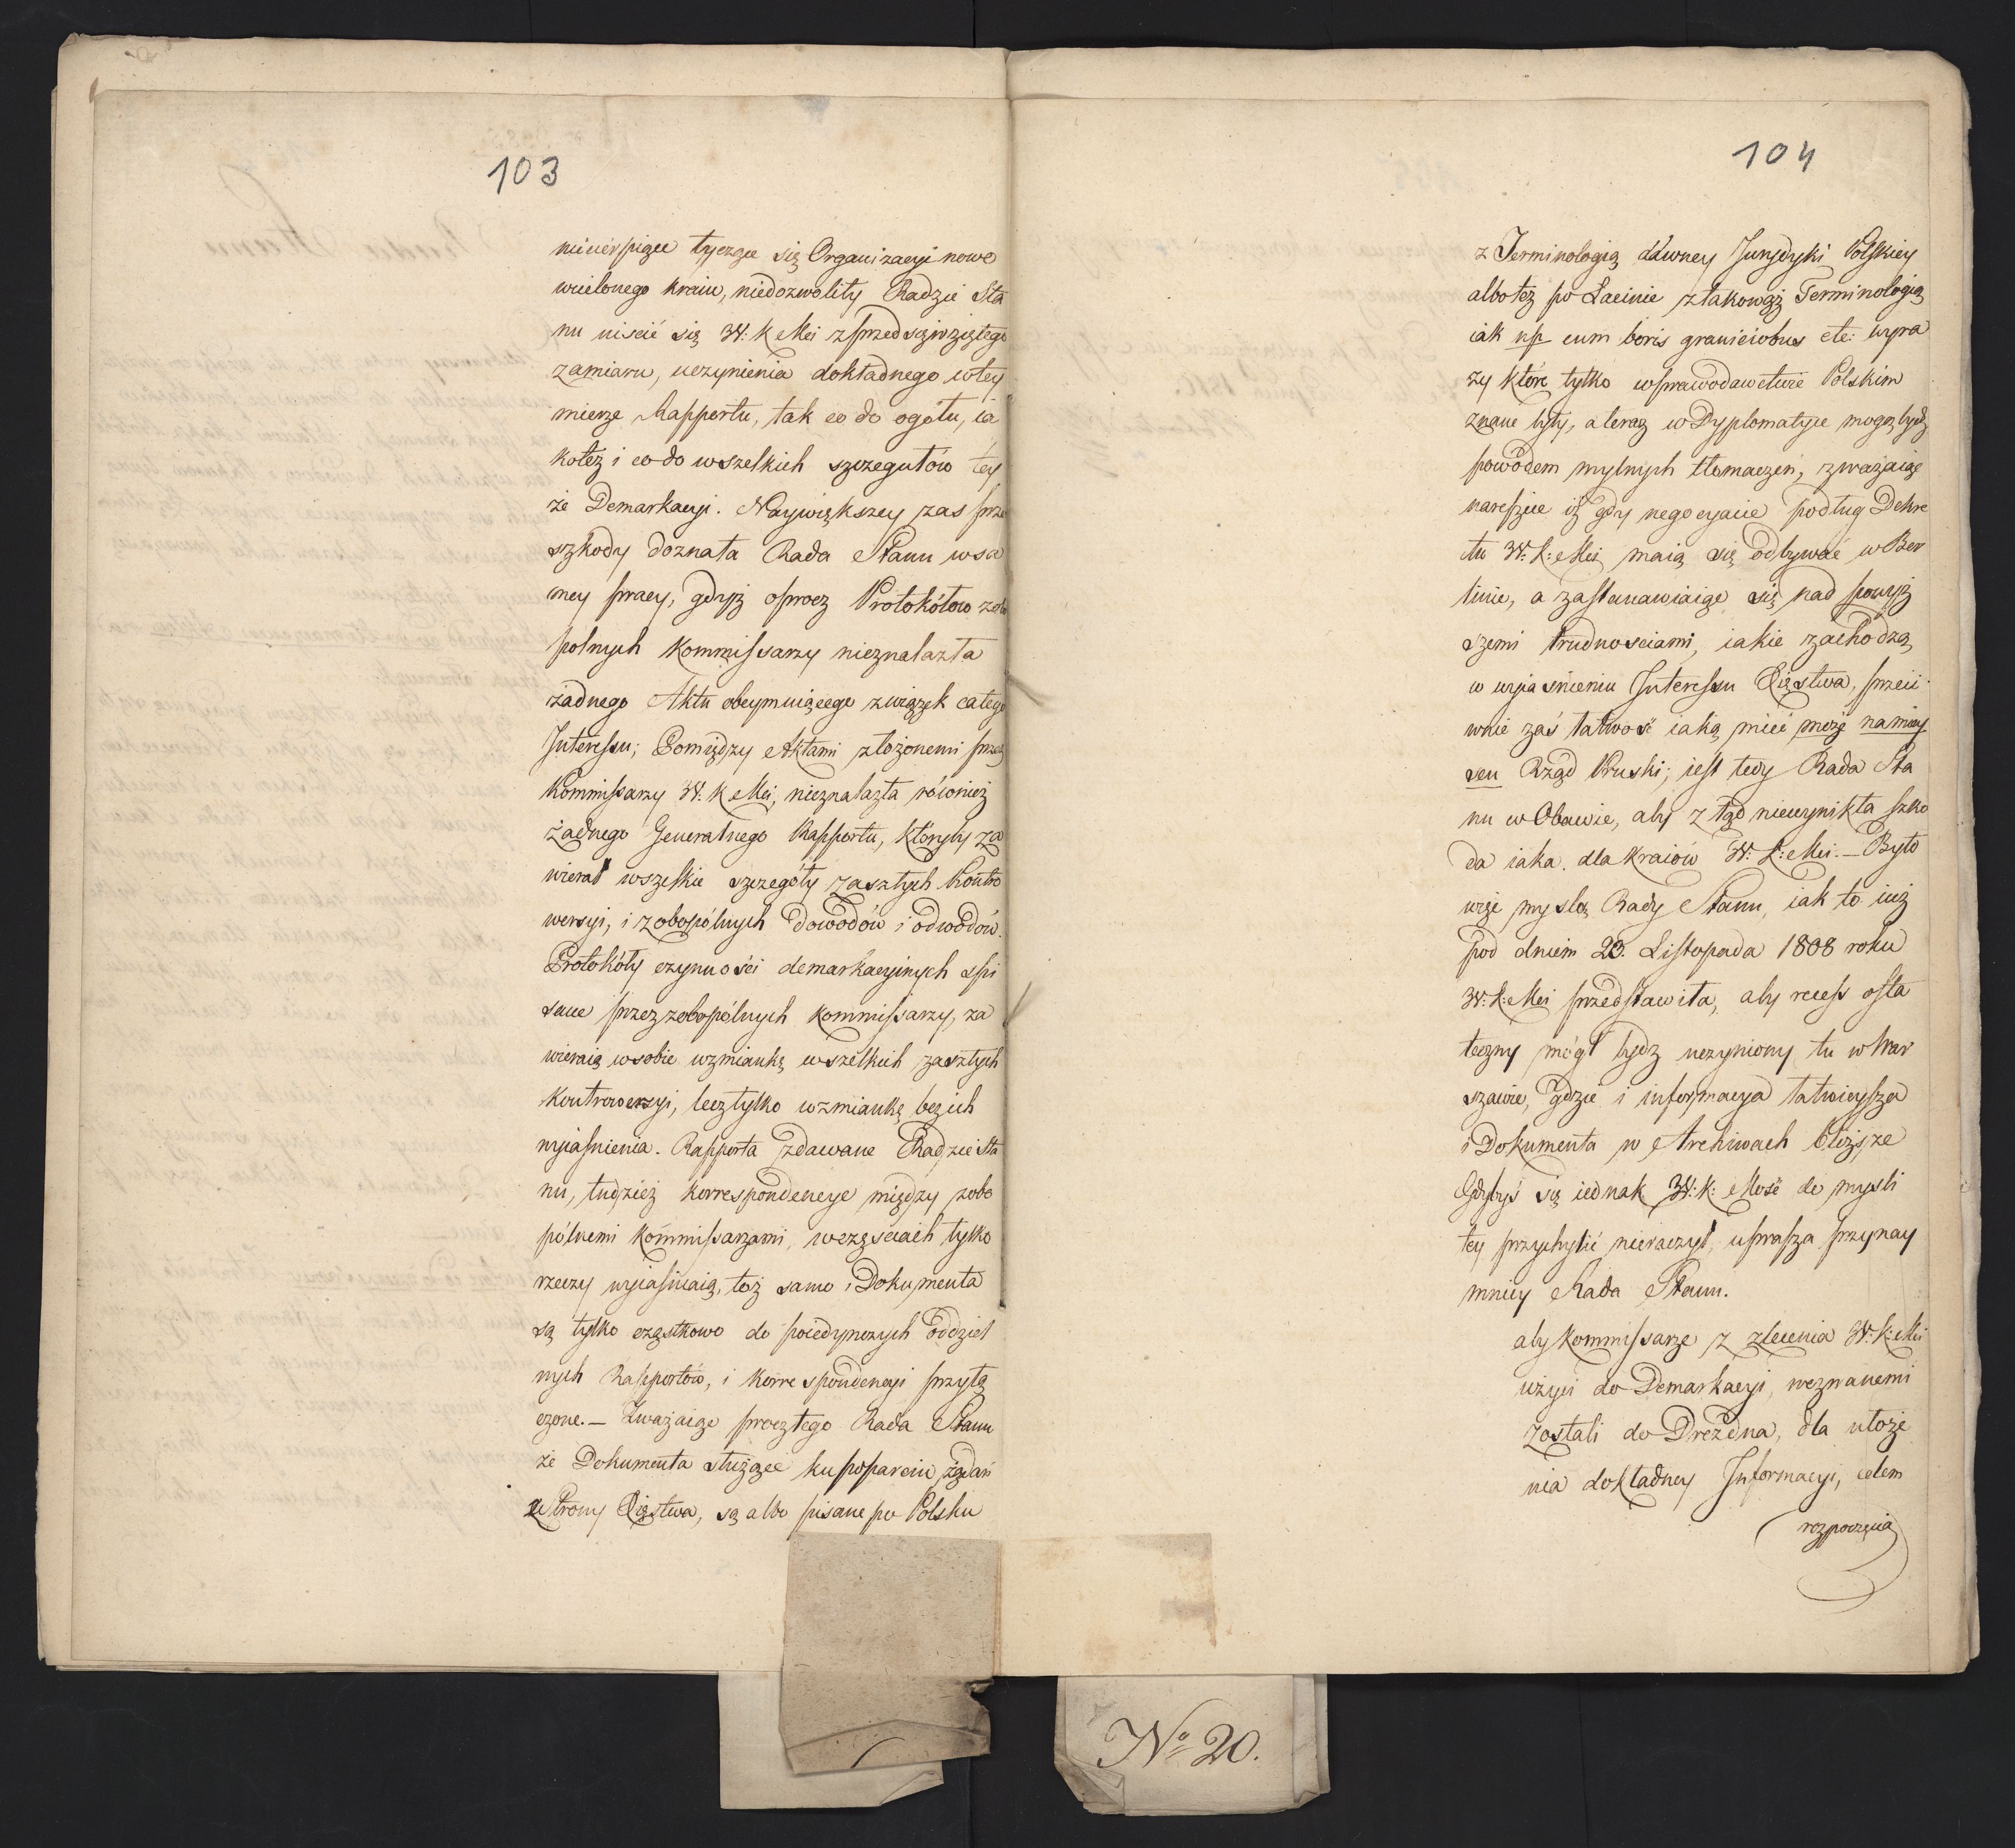 103
niecierpiące tyczące się Organizacyi nowo
wcielonego kraiu, niedozwoliły Radzie Sta
nu uiścić się W: K Mci z przedsięwziętego
zamiaru, uczynienia dokładnego w tey
mierze Rapportu, tak co do ogółu, ia
koteż i co do wszelkich szczegułów tey
że Demarkacyi. Naywiększey zas prze
szkody doznała Rada Stanu w sa
mey pracy, gdyż oprocz Protokółow zobo
polnych Kommissarzy nieznalazła
żadnego Aktu obeymuiącego związek całego
Interessu; Pomiędzy Aktami złożonemi przez
Kommissarzy W. K Mci, nieznalazła również
żadnego Generalnego Rapportu, któryby za
wierał wszelkie szczegóły zaszłych Kontro
wersyi, i zobopólnych dowodów i odwodów.
Protokóły czynności demarkacyinych spi
sane przez zobopólnych Kommissarzy, za
wieraią w sobie wzmiankę wszelkich zaszłych
kontrowersyi, lecz tylko wzmiankę bez ich
wyiaśnienia. Rapporta zdawane Radzie Sta
nu, tudzież korrespondencye między zobo
pólnemi kommissarzami, wczęściach tylko
rzeczy wyiaśniaią, toż samo i Dokumenta
są tylko cząstkowo do poiedynczych oddziel
nych Rapportów, i korrespondencyi przyłą
czone. – Zważaiąc procz tego Rada Stanu
że Dokumenta służące ku poparciu żądań
ze strony Xięstwa, są albo pisane po Polsku
104
z Terminologią dawney Jurydyki Polskiey
albo też po Łacinie z takowąż Terminologią
iak np cum boris graniciebus etc: wyra
zy które tylko w prawodawctwie Polskim
znane były, a teraz w Dyplomatyce mogą bydź
powodem mylnych tłomaczeń, zważaiąc
nareszcie iż gdy negocyacie podług Dekre
tu W: K: Mci maią się odbywać w Ber
linie, a zastanawiaiąc się nad powyż
szemi trudnosciami, iakie zachodzą
w wyiaśnieniu Interessu Xięstwa, przeci
wnie zaś łatwość iaką mieć może na miey
scu Rząd Pruski; iest tedy Rada Sta
nu w Obawie, aby z tąd niewynikła szko
da iaka dla Kraiów W: K: Mci. – Było
więc myslą Rady Stanu, iak to iuż
pod dniem 23. Listopada 1808 roku
W: K: Mci przedstawiła, aby recess osta
teczny mógł bydz uczyniony tu w War
szawie, gdzie i informacya łatwieysza
i Dokumenta w Archiwach bliższe
Gdybyś się iednak W: K: Mość do mysli
tey przychylić nieraczył, uprasza przynay
mniey Rada Stanu.
aby Kommissarze z zlecenia W: K: Mci
użyci do Demarkacyi, wezwanemi
zostali do Drezdna, dla ułoże
nia dokładney Informacyi, celem
rozpoczęcia
No 20.